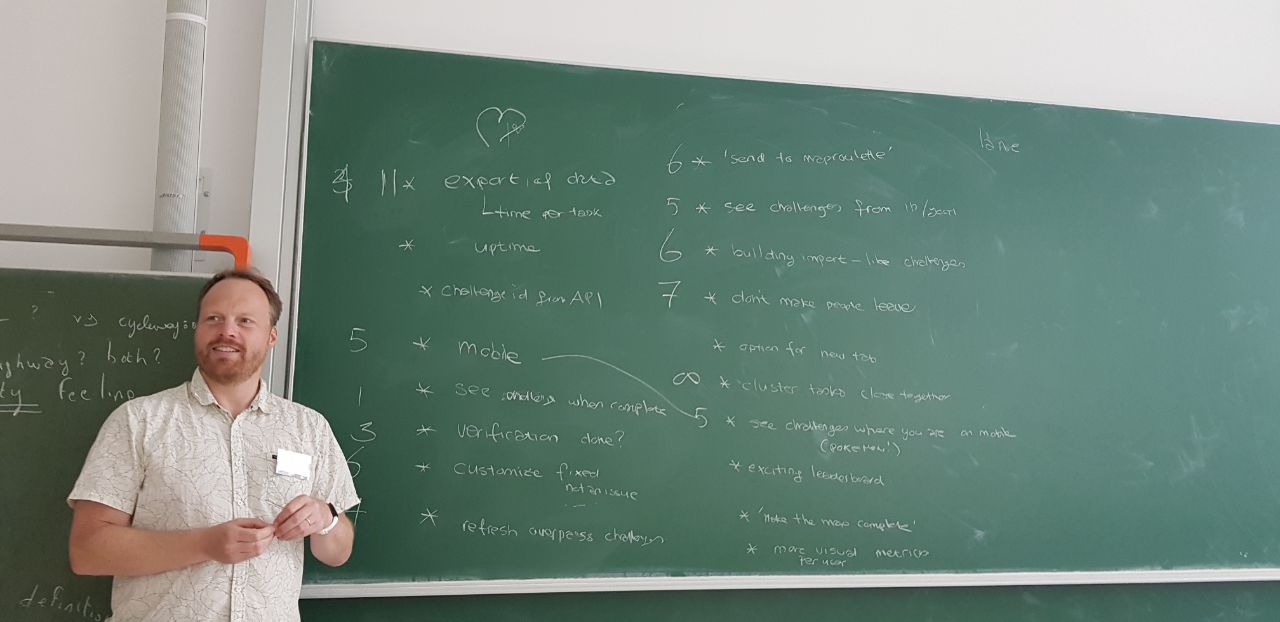 ? vs cycleway:
highway? both?
ty feeling
definition
11 * export of data
time per task
* uptime
* challenge id from API
5 * mobile
1 * see when complete
3 * verification done?
* customize fixed
not an issue
* refresh overpass challenges
6 * 'send to maproulette'
5 * see challenges from iD/JOSM
6 * building import-like challenges
7 * don't make people leave
* option for new tab
∞ * cluster tasks close together
5 * see challenges where you are on mobile
(pokemon!)
* exciting leaderboard
* 'Make the map complete'
* more visual metrics
per user
lane